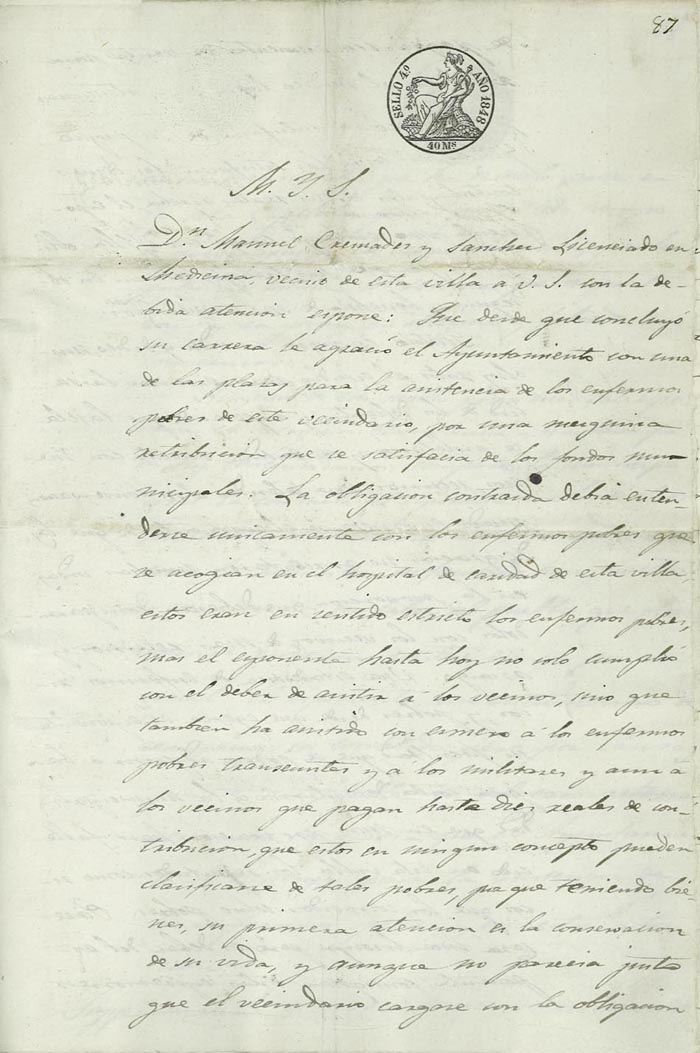 87
SELLO 4º AÑO 1848
40 Ms
M. Y. S.
D.n Manuel Cremades y Sanchez Licenciado en
Medicina, vecino de esta villa á V. S. con la de-
bida atencion espone: Que desde que concluyó
su carrera le agració el Ayuntamiento con una
de las plazas para la asistencia de los enfermos
pobres de este vecindario, por una mezquina
retribucion que se satisfacia de los fondos mu-
nicipales. La obligacion contraida debia enten-
derse unicamente con los enfermos pobres que
se acogian en el hospital de caridad de esta villa
estos eran en sentido estricto los enfermos pobres,
mas el esponente hasta hoy no solo cumplió
con el deber de asistir á los vecinos, sino que
tambien ha asistido con esmero á los enfermos
pobres transeuntes y á los militares y aun á
los vecinos que pagan hasta dies reales de con-
tribucion, que estos en ningun concepto pueden
clasificarse de tales pobres, porque teniendo bie-
nes, su primera atencion es la conservacion
de su vida, y aunque no parecia justo
que el vecindario cargase con la obligacion